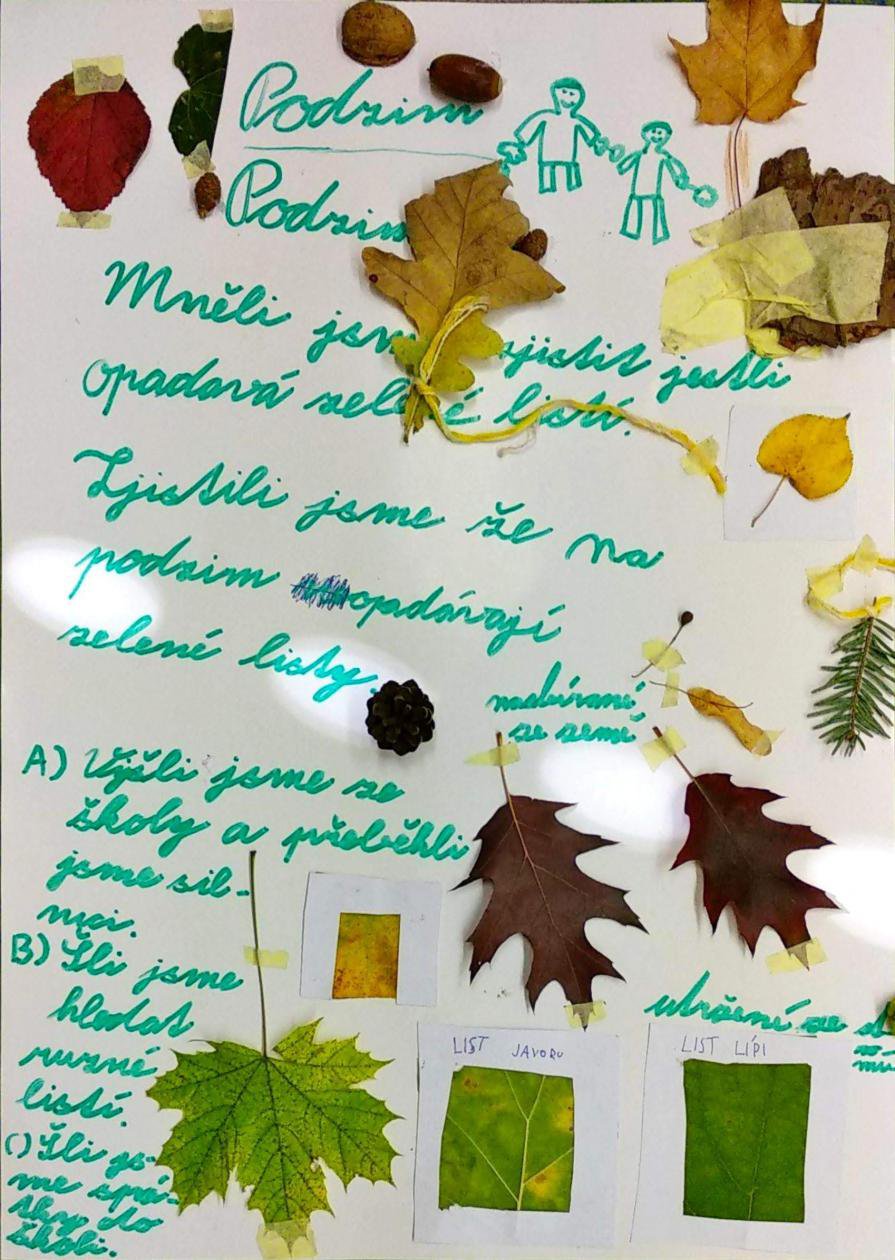 Podzim
Podzim
Mněli jsm jistit jestli
opadavá zelené listí.
Zjistili jsme že na
podzim opadávají
zelené listy.
nasbírané
ze země
A) Vyjšli jsme ze
školy a přeběhli
jsme sil-
nici.
B) Šli jsme
hledat
ruzné
listí.
C) Šli js-
me spá-
tky do
školi.
utržené ze
LIST JAVORU
LIST LÍPI